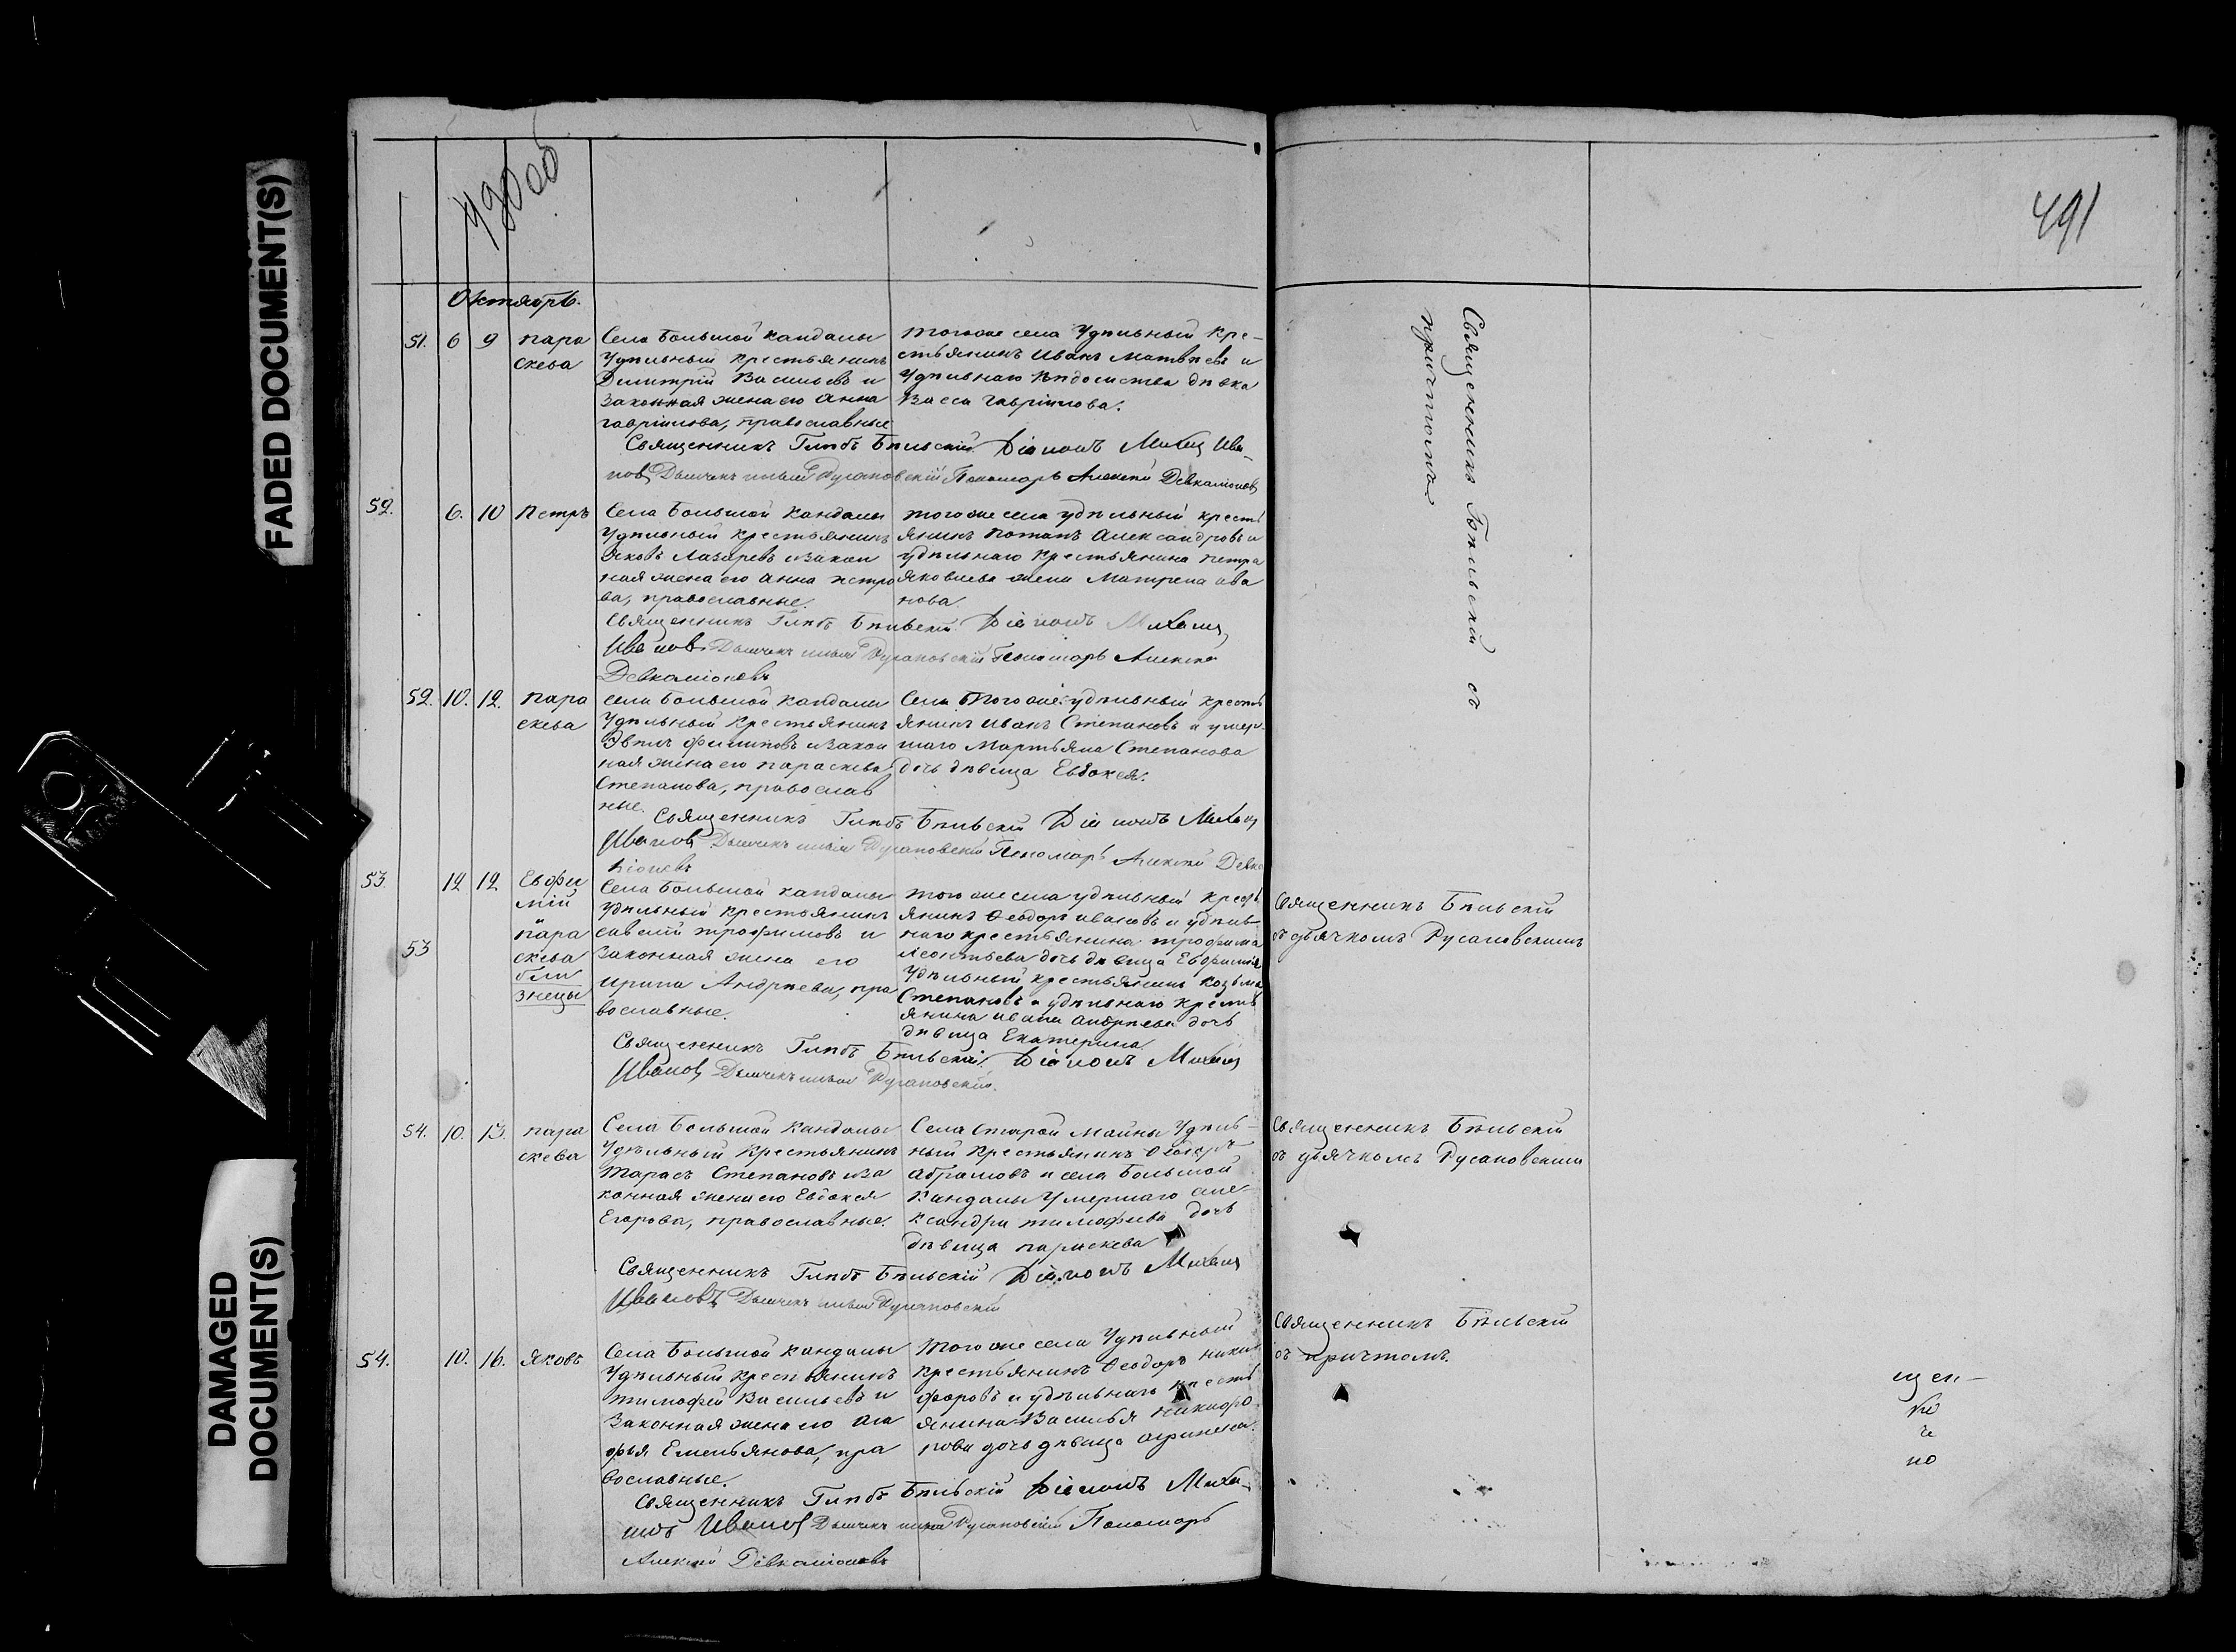 FADED DOCUMENT(S)
DAMAGED
DOCUMENT(S)
490 об
491
Октябрь.
51. 6 9 Пара
скева
Села Большой Кандалы
Удѣльный крестьянинъ
Димитрій Васильевъ и
законная жена его Анна
Гаврiилова, православные
Тогоже села Удѣльный кре-
стьянинъ Иванъ Матвѣевъ и
Удѣльнаго вѣдомства дѣвка
Васса Гаврiилова.
Священникъ Глѣбъ Бѣльскій Діаконъ Михаил Ива-
нов Дьячекъ Русановскій Пономарь Алексѣй Девкаліоновъ
52. 6. 10 Петръ
Села Большой Кандалы
Удѣльный крестьянинъ
Яковъ Лазаревъ и закон
ная жена его Анна Петро
ва, православные.
Тогоже села удѣльный кресть
янинъ Потапъ Александровъ и
удѣльнаго крестьянина Петра
Яковлева жена Матрена Ива
нова.
Священникъ Глѣбъ Бѣльскій Діаконъ Михаил
Иванов Дьячекъ Русановскій Пономарь Алексѣй
Девкаліоновъ
52. 10. 12. Пара
скева
Села Большой Кандалы
Удѣльный крестьянинъ
Филиповъ и закон
ная жена его Параскева
Степанова, православ
ные.
Села Тогоже удѣльный кресть
янинъ Иванъ Степановъ и умер-
шаго Мартьяна Степанова
дочь дѣвица Евдокея.
Священникъ Глѣбъ Бѣльскій Діаконъ Михаил
Иванов Дьячекъ Русановскій Пономарь Алексѣй Девка
ліоновъ
53. 12 12. Евфи
мій
53 Пара
скева
бли
знецы
Села Большой Кандалы
Удѣльный крестьянинъ
Савелій Трофимовъ и
законная жена его
Ирина Андрѣева, пра
вославные.
Тогоже села удѣльный крест
янинъ Ѳеодоръ Ивановъ и удѣль-
наго крестьянина Трофима
Леонтьева дочь дѣвица Евфимія
Удѣльный крестьянинъ Козьма
Степановъ и удѣльнаго кресть
янина Ивана Андрѣева дочь
дѣвица Екатерина
Священникъ Глѣбъ Бѣльскій Діаконъ Михаил
Иванов Дьячекъ Русановскій.
54. 10. 13. Пара
скева
Села Большой Кандалы
Удѣльный крестьянинъ
Тарасъ Степановъ и за
конная жена его Евдокея
Егорова, православные.
Села Старой Майны Удѣль-
ный крестьянинъ Ѳеодоръ
Абрамовъ и села Большой
Кандалы умершаго Але-
ксандра Тимофѣева дочь
дѣвица Параскева
Священникъ Глѣбъ Бѣльскій Діаконъ Михаил
Ивановъ Дьячекъ Русановскій
54. 10. 16. Яковъ
Села Большой Кандалы
Удѣльный крестьянинъ
Тимофей Васильевъ и
законная жена его Ага
фья Емельянова, пра
вославные.
Тогоже села Удѣльный
крестьянинъ Ѳеодоръ Ники
форовъ и удѣльнаго кресть
янина Василья Никифо
рова дочь дѣвица Агрипена.
Священникъ Глѣбъ Бѣльскій Діаконъ Миха-
илъ Иванов Дьячекъ Русановскій Пономарь
Алексѣй Девкаліоновъ
Священникъ Бѣльскій съ
причтомъ
Священникъ Бѣльскій
съ дьячкомъ Русановскимъ
Священникъ Бѣльскій
съ дьячкомъ Русановскимъ
Священникъ Бѣльскій
съ причтомъ.
щен-
но